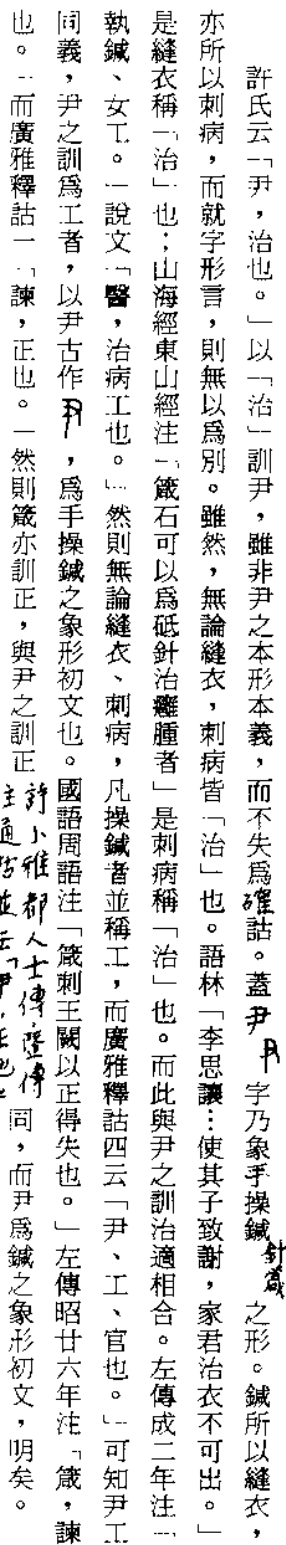 許氏云「尹，治也。」以「治」訓尹，雖非尹之本形本義，而不失為確詁。蓋尹字乃象手操鍼針箴之形。鍼所以縫衣，
亦所以刺病，而就字形言，則無以為別。雖然，無論縫衣，刺病皆「治」也。語林「李思讓…使其子致謝，家君治衣不可出。」
是縫衣稱「治」也；山海經東山經注「箴石可以為砥針治癰腫者」是刺病稱「治」也。而此與尹之訓治適相合。左傳成二年注「
執鍼、女工。」說文「醫，治病工也。」然則無論縫衣、刺病，凡操鍼者並稱工，而廣雅釋詁四云「尹、工、官也。」可知尹工
同義，尹之訓為工者，以尹古作，為手操鍼之象形初文也。國語周語注「箴刺王闕以正得失也。」左傳昭廿六年注「箴，諫
也。」而廣雅釋詁一「諫，正也。」然則箴亦訓正，與尹之訓正詩小雅都人士傳同，而尹為鍼之象形初文，明矣。